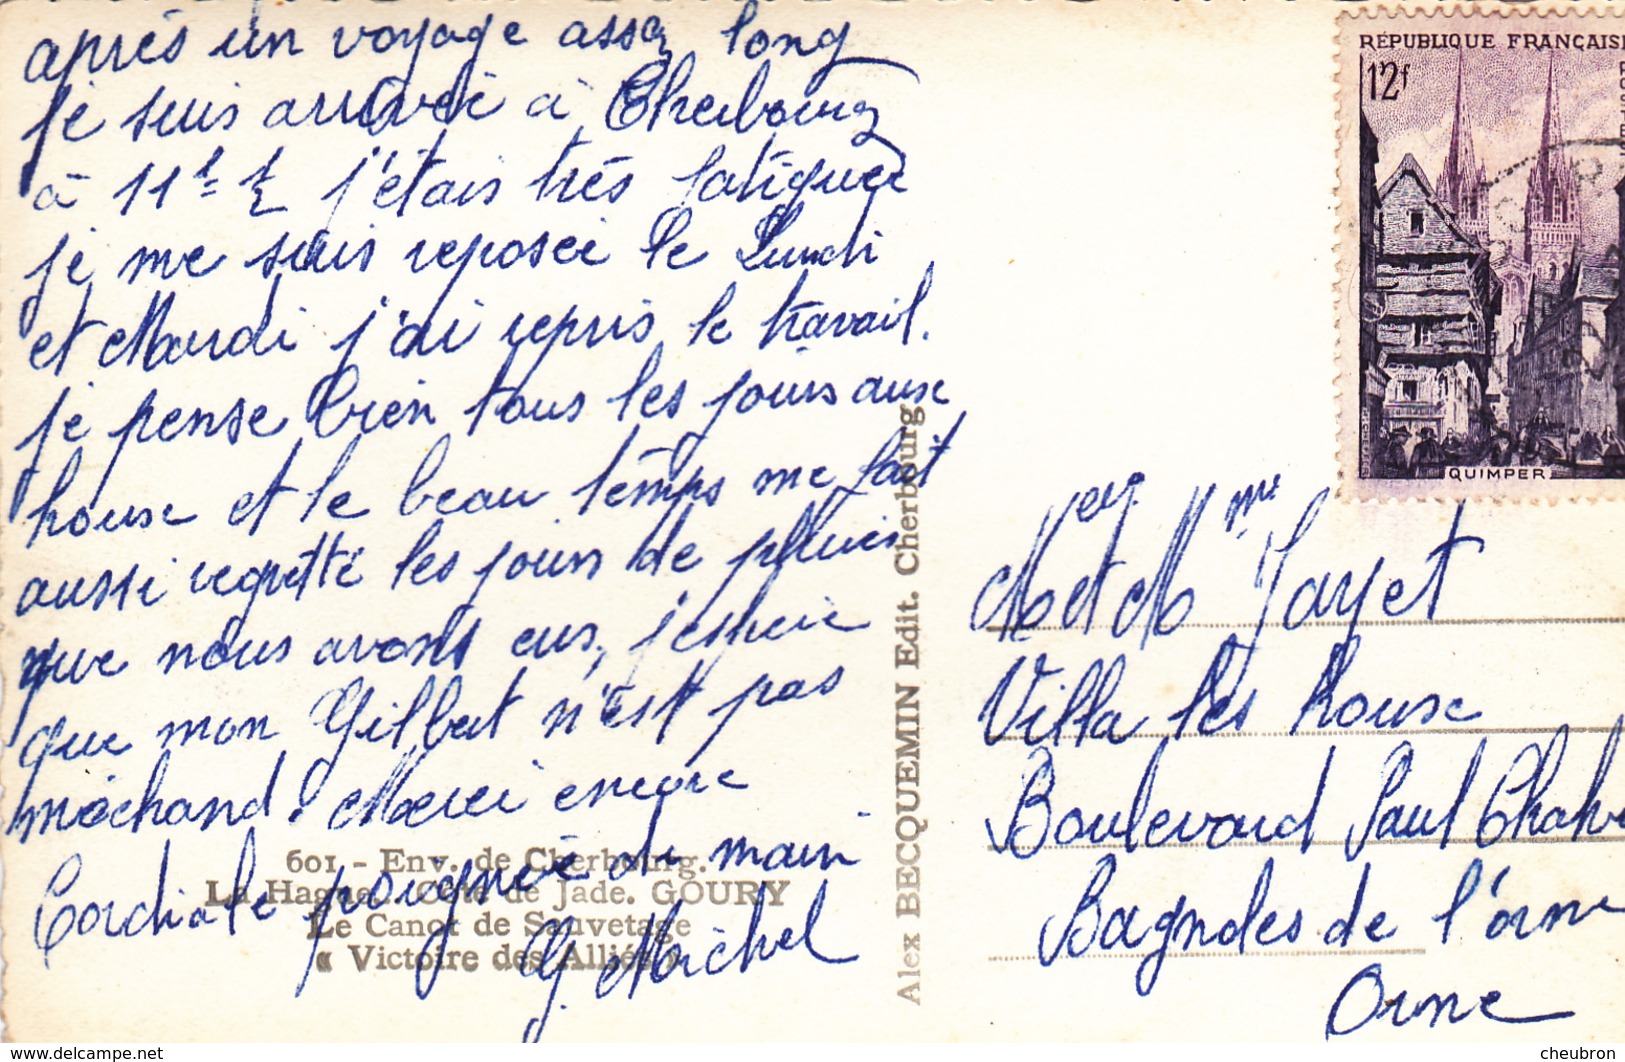 après un voyage assez long
je suis arrivée à Cherbourg
à 11h 1/2 j'étais très fatiguée
je me suis reposée le Lundi
et Mardi j'ai repris le travail.
je pense bien tous les jours aux
houx et le beau temps me fait
aussi regretté les jours de pluies
que nous avons eus, j'espère
que mon Gilbert n'est pas
méchand. Merci encore
Cordiale poignée de main
G. Michel
601 - Env. de Cherbourg.
La Hague. Côte de Jade. GOURY
Le Canot de Sauvetage
« Victoire des Alliés »
Alex BECQUEMIN Edit. Cherbourg
RÉPUBLIQUE FRANÇAISE
12f
QUIMPER
M et Mme Jayet
Villa les houx
Boulevard Paul
Bagnoles de l'orne
Orne
cheubron - www.delcampe.net